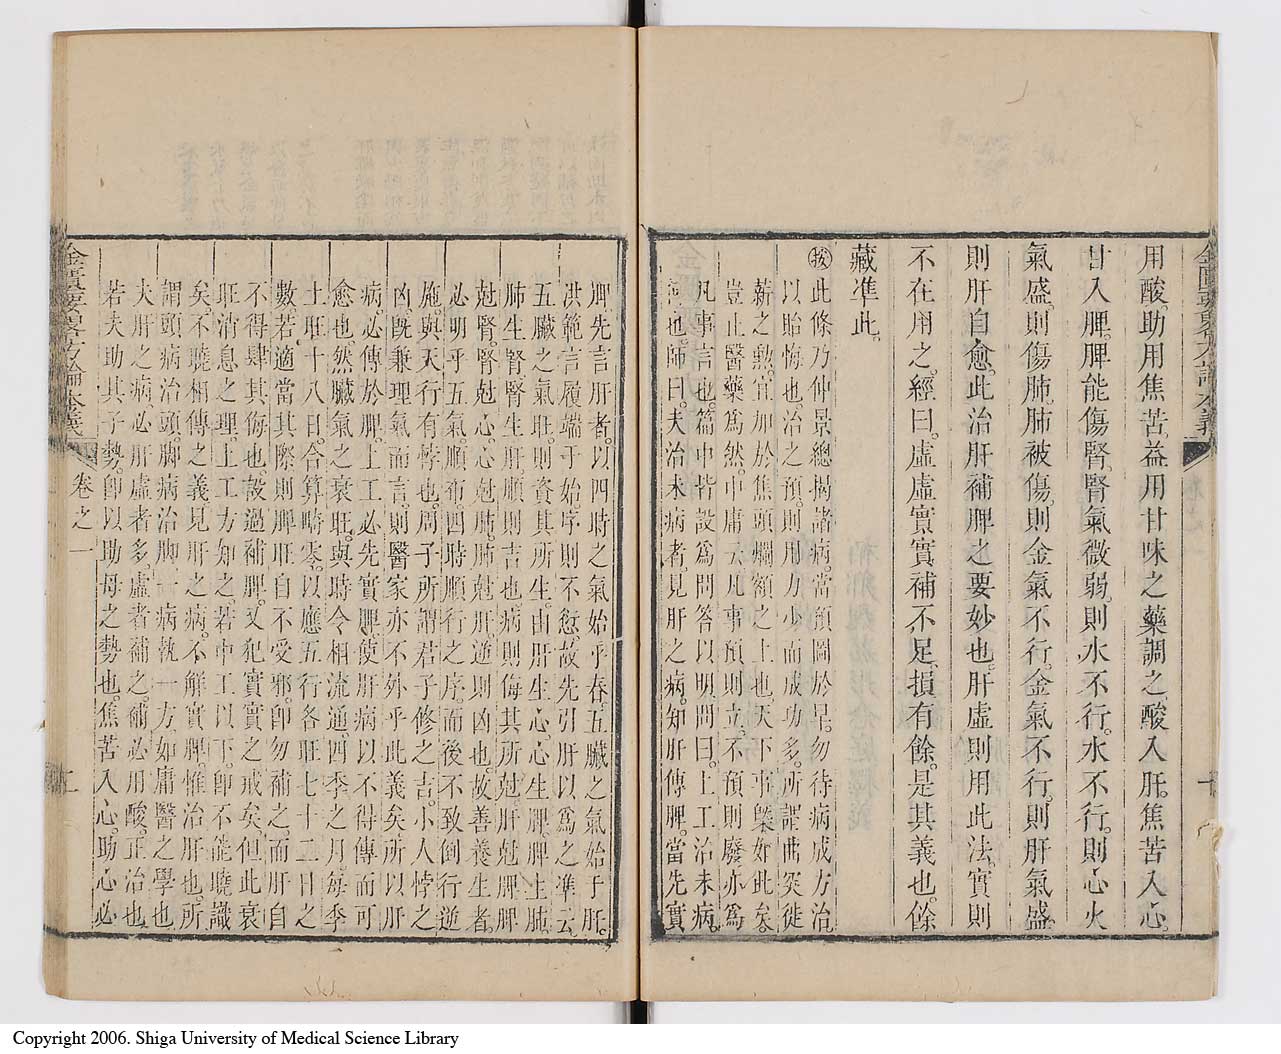 用酸。助用焦苦。益用甘味之藥調之。酸入肝。焦苦入心。
甘入脾。脾能傷腎。腎氣微弱。則水不行。水不行。則心火
氣盛。則傷肺。肺被傷。則金氣不行。金氣不行。則肝氣盛。
則肝自愈。此治肝補脾之要妙也。肝虛則用此法。實則
不在用之。經曰。虛虛實實。補不足。損有餘。是其義也。餘
藏準此。
按此條乃仲景總揭諸病。當預圖於早。勿待病成方治。
以貽悔也。治之預。則用力少而成功多。所謂曲突徙
薪之勲。宜加於焦頭爛額之上也。天下事槩如此矣。
豈止醫藥爲然。中庸云。凡事預則立。不預則廢。亦爲
凡事言也。篇中皆設爲問答以明。問曰。上工治未病。
何也。師曰。夫治未病者。見肝之病。知肝傳脾。當先實
脾。先言肝者。以四時之氣始乎春。五臟之氣始于肝。
洪範言履端于始。序則不愆。故先引肝以爲之準云。
五臟之氣旺。則資其所生。由肝生心。心生脾。脾生肺。
肺生腎。腎生肝。順則吉也。病則侮其所尅。肝尅脾。脾
尅腎。腎尅心。心尅肺。肺尅肝。逆則凶也。故善養生者。
必明乎五氣順布。四時順行之序。而後不致倒行逆
施。與天行有悖也。周子所謂君子修之吉。小人悖之
凶。既兼理氣而言。則醫家亦不外乎此義矣。所以肝
病。必傳於脾。上工必先實脾。使肝病以不得傳而可
愈也。然臟氣之衰旺。與時令相流通。四季之月。每季
土旺十八日。合算畸零。以應五行各旺七十二日之
數。若適當其際。則脾旺自不受邪。即勿補之。而肝自
不得肆其侮也。設過補脾。又犯實實之戒矣。但此衰
旺消息之理。上工方知之。若中工以下。即不能曉識
矣。不曉相傳之義。見肝之病。不解實脾。惟治肝也。所
謂頭病治頭。脚病治脚。一病執一方。如庸醫之學也。
夫肝之病。必肝虛者多。虛者補之。補必用酸。正治也。
若夫助其子勢。即以助母之勢也。焦苦入心。助心必
金匱要畧方論本義
卷之一